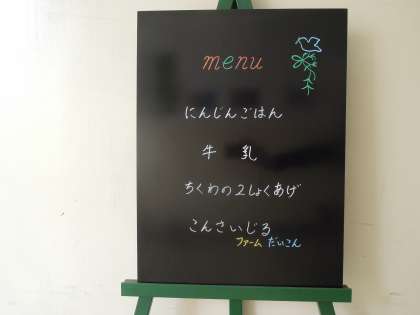 menu
にんじんごはん
牛乳
ちくわの2しょくあげ
こんさいじる
ファーム だいこん